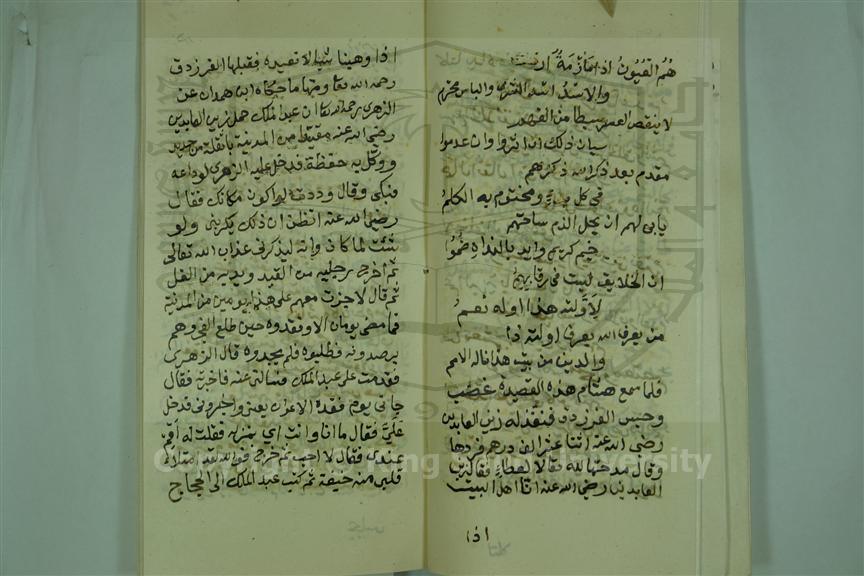 هُمُ الغُيُوثُ اذا مَا أزْمَةٌ أزِمَتْ
والاسْدُ اسْدُ الشرى والباس محتدم
لا ينقص العسر بسطا من اكفهم
سيان ذلك ان اثروا وان عدموا
مقدم بعد ذكر الله ذكرهم
في كل بدءٍ ومختوم به الكلمُ
يابى لهم ان يحل الذم ساحتهم
خيم كريم وايد بالنداء هُضُم
اى الخلايق ليست في رقابهمُ
لأوَّليّة هذا اوله نعمُ
من يعرف الله يعرف اولية ذا
والدين من بيت هذا ناله الامم
فلما سمع هشام هذه القصيدة غضب
وحبس الفرزدق فنفذ له زين العابدين
رضى الله عنه اثنا عشر الف درهم فردها
وقال مدحته لله تعالى لا للعطاء فقال زين
العابدين رضى الله عنه انا اهل البيت
اذا
اذا وهبنا شيا لا نعيده فقبلها الفرزدق
رحمه الله تعالى ومنها ما حكاه ابن حمدان عن
الزهرى رحمه الله تعالى ان عبد الملك حمل زين العابدين
رضى الله عنه مقيدا من المدينة باثقلة من حديد
ووكّل به حفظة فدخل عليه الزهرى لوداعه
فبكى وقال وددت لو اكون مكانك فقال
رضى الله عنه اتظن ان ذلك يكربنى ولو
شئت لما كان وانه ليذكرنى عذاب الله تعالى
ثم اخرج رجليه من القيد ويديه من الغل
ثم قال لا جزت معهم على هذا يومين من المدينة
فما مضى يومان الا وفقدوه حين طلع الفجر وهم
يرصدونه فطلبوه فلم يجدوه قال الزهرى
فقدمت على عبد الملك فسالنى عنه فاخبرته فقال
جانى يوم فقده الاعوان فدخل
عَلَيَّ فقال ما انا وانت فقلت له اقم
عندى فقال لا احب ثم خرج فوالله لقد امتلا
قلبى منه خيفة ثم كتب عبد الملك الى الحجاج